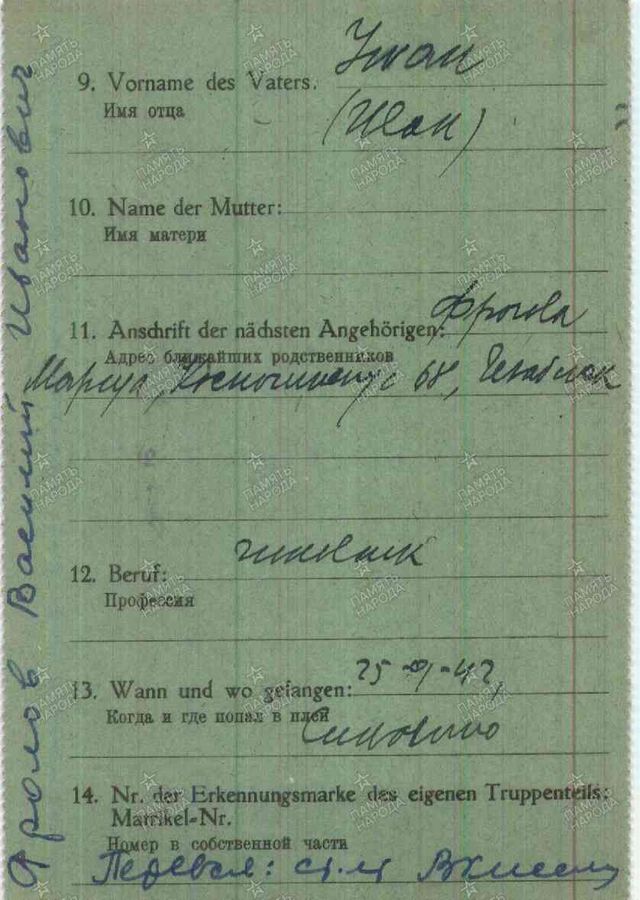 Фролов Василий Иванович
Иван
9. Vorname des Vaters.
Имя отца
(Иван)
10. Name der Mutter:
Имя матери
11. Anschrift der nächsten Angehörigen: Фролова
Адрес ближайших родственников
Мария, 68,
чиновник
12. Beruf:
Профессия
13. Wann und wo gefangen: 25
Когда и где попал в плен
Синявино
14. Nr. der Erkennungsmarke des eigenen Truppenteils:
Matrikel-Nr.
Номер в собственной части
Перевел:
ПАМЯТЬ НАРОДА